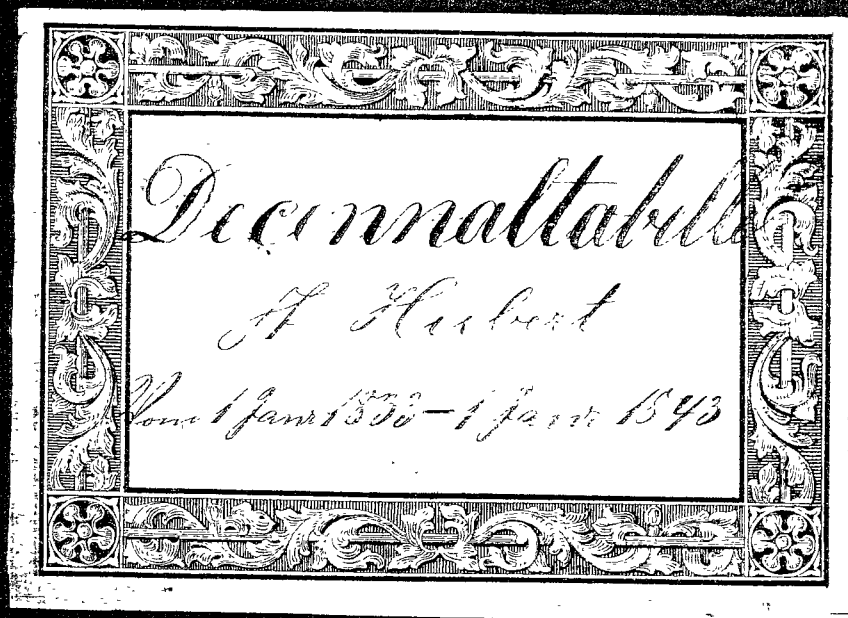 Decennaltabelle
St Hubert
Vom 1 Janr 1833 – 1 Janr 1843